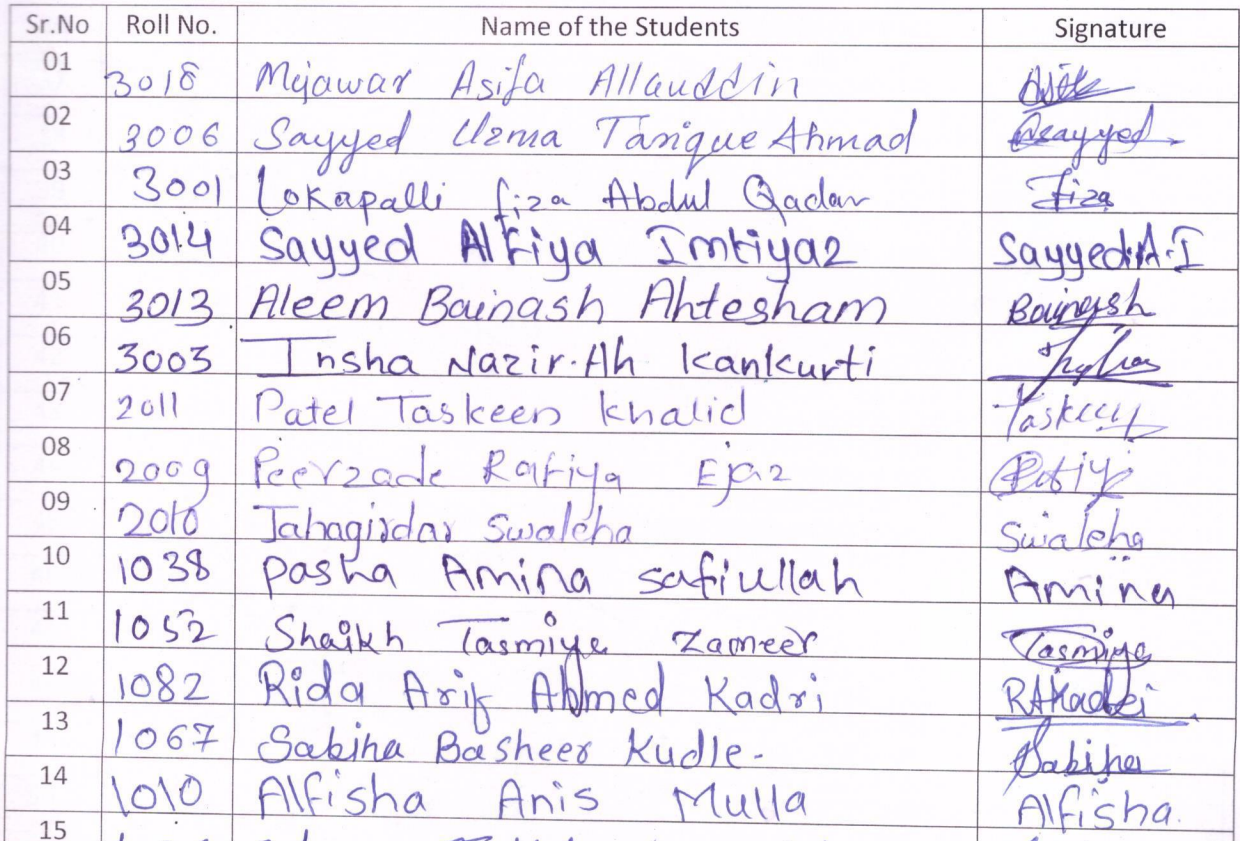 Sr.No Roll No. Name of the Students Signature
01 3018 Mujawar Asifa Allauddin
02 3006 Sayyed Uzma Tarique Ahmad Usayyed
03 3001 Lokapalli fiza Abdul Qadar Fiza
04 3014 Sayyed Alfiya Imtiyaz Sayyed.A.I
05 3013 Aleem Bainash Ahtesham Bainash
06 3003 Insha Nazir.Ah Kankurti
07 2011 Patel Taskeen Khalid Taskeen
08 2009 Peerzade Rafiya Ejaz Rafiya
09 2010 Jahagirdar Swaleha Swaleha
10 1038 Pasha Amina Safiullah Amina
11 1052 Shaikh Tasmiya Zameer Tasmiya
12 1082 Rida Arif Ahmed Kadri RAKadri
13 1067 Sabiha Basheer Kudle- Sabiha
14 1010 Alfisha Anis Mulla Alfisha.
15